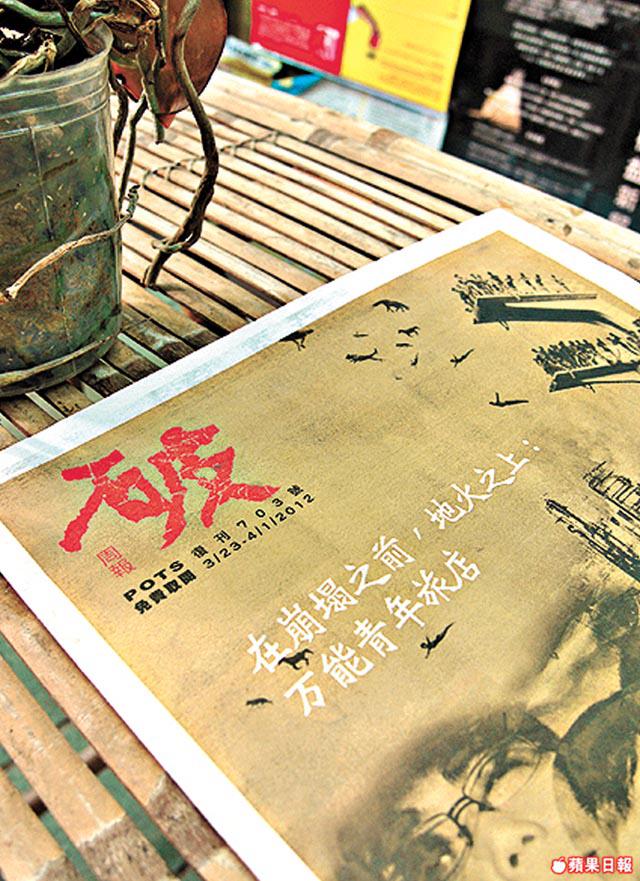 破
周報
POTS 復刊703號
免費取閱 3/23-4/1/2012
在崩塌之前，地火之上：
万能青年旅店
蘋果日報